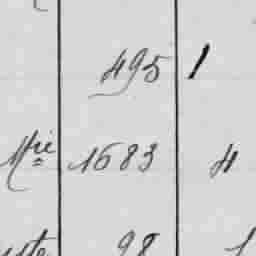 495 1
Mie 1683 4
98